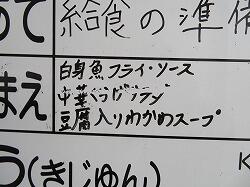 めて
給食の準備
白身魚フライ・ソース
中華くらげサラダ
豆腐入りわかめスープ
まえ
う(きじゅん)
K